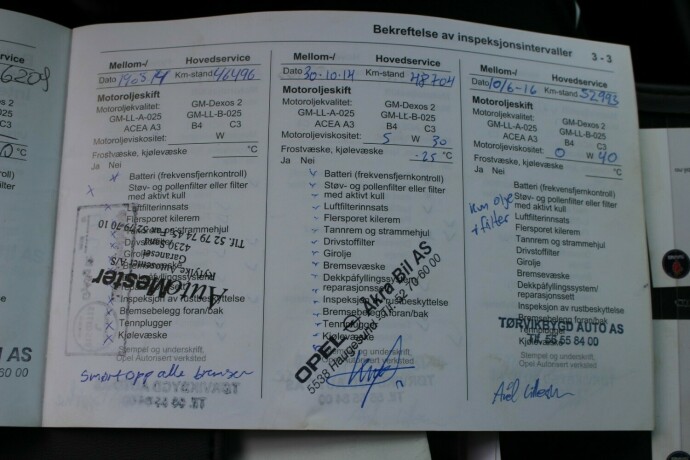 Bekreftelse av inspeksjonsintervaller 3 - 3
6209
AS
60 00
Mellom-/ Hovedservice
Dato Km-stand 46496
Motoroljeskift
Motoroljekvalitet: GM-Dexos 2
GM-LL-A-025 GM-LL-B-025
ACEA A3 B4 C3
Motoroljeviskositet: W
Frostvæske, kjølevæske °C
Ja Nei
Batteri (frekvensfjernkontroll)
Støv- og pollenfilter eller filter
med aktivt kull
Luftfilterinnsats
Flersporet kilerem
Tannrem og strammehjul
Drivstoffilter
Girolje
Bremsevæske
Dekkpåfyllingssystem/
Inspeksjon av rustbeskyttelse
Bremsebelegg foran/bak
Tennplugger
Kjølevæske
AutoMester
Ryfylke Autosenter A/S
Tlf. 52 79 74 45
Stempel og underskrift,
Opel Autorisert verksted
smørt opp alle bremser
Mellom-/ Hovedservice
Dato 30-10-14 Km-stand 48704
Motoroljeskift
Motoroljekvalitet: GM-Dexos 2
GM-LL-A-025 GM-LL-B-025
ACEA A3 B4 C3
Motoroljeviskositet: 5 W 30
Frostvæske, kjølevæske -25 °C
Ja Nei
Batteri (frekvensfjernkontroll)
Støv- og pollenfilter eller filter
med aktivt kull
Luftfilterinnsats
Flersporet kilerem
Tannrem og strammehjul
Drivstoffilter
Girolje
Bremsevæske
Dekkpåfyllingssystem/
reparasjonssett
Inspeksjon av rustbeskyttelse
Bremsebelegg foran/bak
Tennplugger
Kjølevæske
OPEL Åkra Bil AS
5538 Haugesund Tlf. 52 70 60 00
Opel Autorisert verksted
Mellom-/ Hovedservice
Dato 10/6-16 Km-stand 52993
Motoroljeskift
Motoroljekvalitet: GM-Dexos 2
GM-LL-A-025 GM-LL-B-025
ACEA A3 B4 C3
Motoroljeviskositet: 0 W 40
Frostvæske, kjølevæske °C
Ja Nei
Batteri (frekvensfjernkontroll)
Støv- og pollenfilter eller filter
med aktivt kull
kun olje
+ filter
Luftfilterinnsats
Flersporet kilerem
Tannrem og strammehjul
Drivstoffilter
Girolje
Bremsevæske
Dekkpåfyllingssystem/
reparasjonssett
Inspeksjon av rustbeskyttelse
Bremsebelegg foran/bak
TØRVIKBYGD AUTO AS
Tlf. 56 55 84 00
Kjølevæske
Stempel og underskrift,
Opel Autorisert verksted